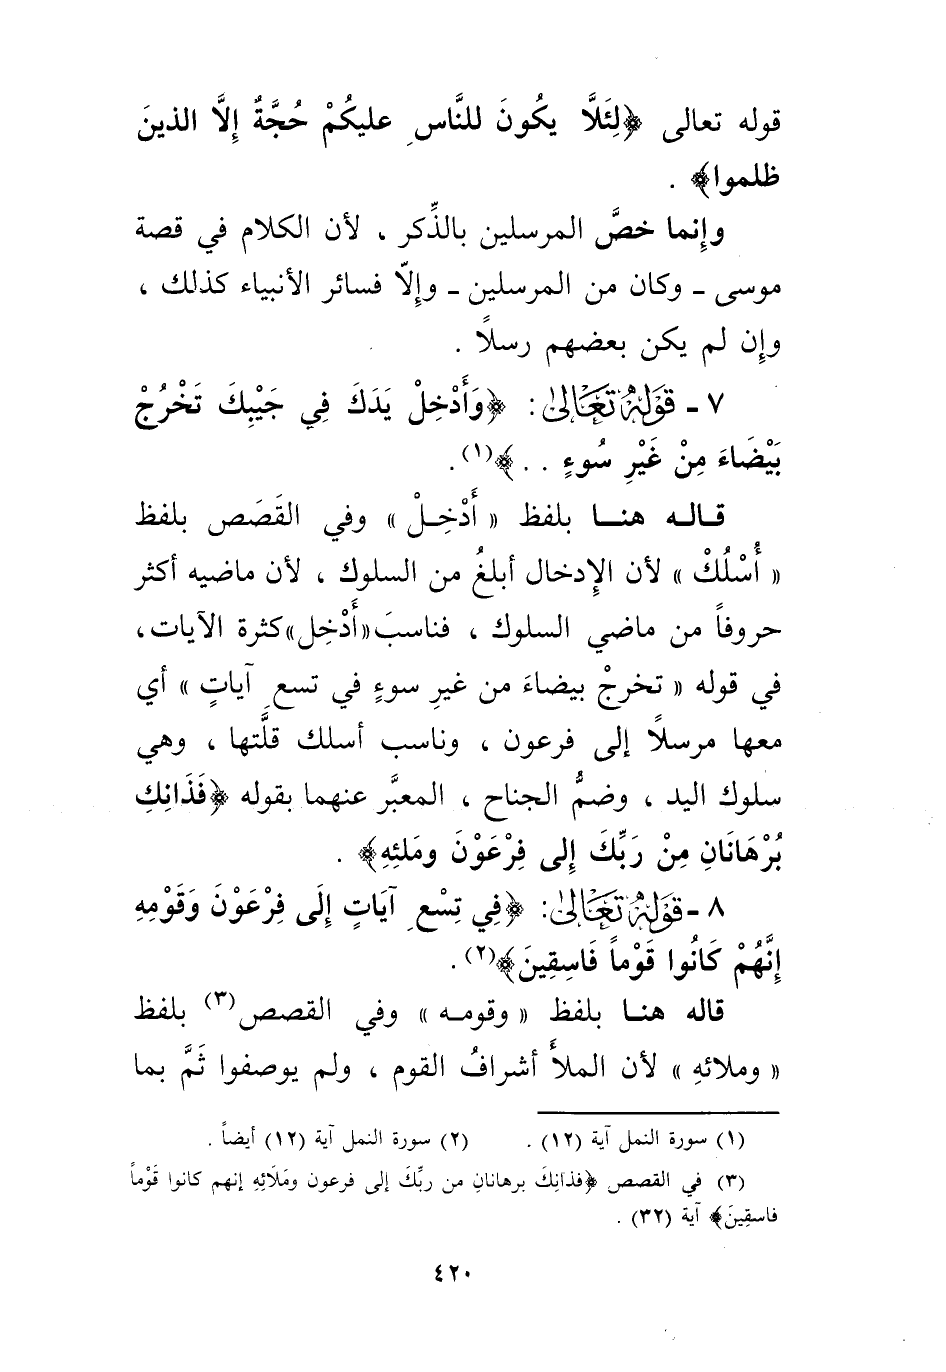 قوله تعالى ﴿لِئَلَّا يكُونَ للنَّاسِ عليكُمْ حُجَّةٌ إِلَّا الذينَ
ظلموا﴾ .
وإِنما خصَّ المرسلين بالذِّكر ، لأن الكلام في قصة
موسى ـ وكان من المرسلين ـ وإِلّا فسائر الأنبياء كذلك ،
وإِن لم يكن بعضهم رسلًا .
٧ ـ قَوْلُهُ تَعَالَىٰ : ﴿وَأَدْخِلْ يَدَكَ فِي جَيْبِكَ تَخْرُجْ
بَيْضَاءَ مِنْ غَيْرِ سُوءٍ . . ﴾(١).
قـالـه هنــا بلفظ « أَدْخِـلْ » وفي القَصَص بلفظ
« أُسْلُكْ » لأن الإِدخال أبلغُ من السلوك ، لأن ماضيه أكثر
حروفاً من ماضي السلوك ، فناسبَ«أَدْخِل»كثرة الآيات،
في قوله « تخرجْ بيضاءَ من غيرِ سوءٍ في تسعِ آياتٍ » أي
معها مرسلًا إِلى فرعون ، وناسب أسلك قلَّتها ، وهي
سلوك اليد ، وضمُّ الجناح ، المعبَّر عنهما بقوله ﴿فَذَانِكِ
بُرْهَانَانِ مِنْ رَبِّكَ إِلى فِرْعَوْنَ ومَلئِهِ﴾ .
٨ ـ قَوْلُهُ تَعَالَىٰ : ﴿فِي تِسْعِ آيَاتٍ إِلَى فِرْعَوْنَ وَقَوْمِهِ
إِنَّهُمْ كَانُوا قَوْماً فَاسِقِينَ﴾(٢).
قاله هنـا بلفظ « وقومـه » وفي القصص(٣) بلفظ
« وملائهِ » لأن الملأَ أشرافُ القوم ، ولم يوصفوا ثَمَّ بما
(١) سورة النمل آية (١٢) . (٢) سورة النمل آية (١٢) أيضاً .
(٣) في القصص ﴿فذانِكَ برهانانِ من ربِّكَ إلى فرعون ومَلَائِهِ إنهم كانوا قَوْماً
فاسقِينَ﴾ آية (٣٢) .
٤٢٠